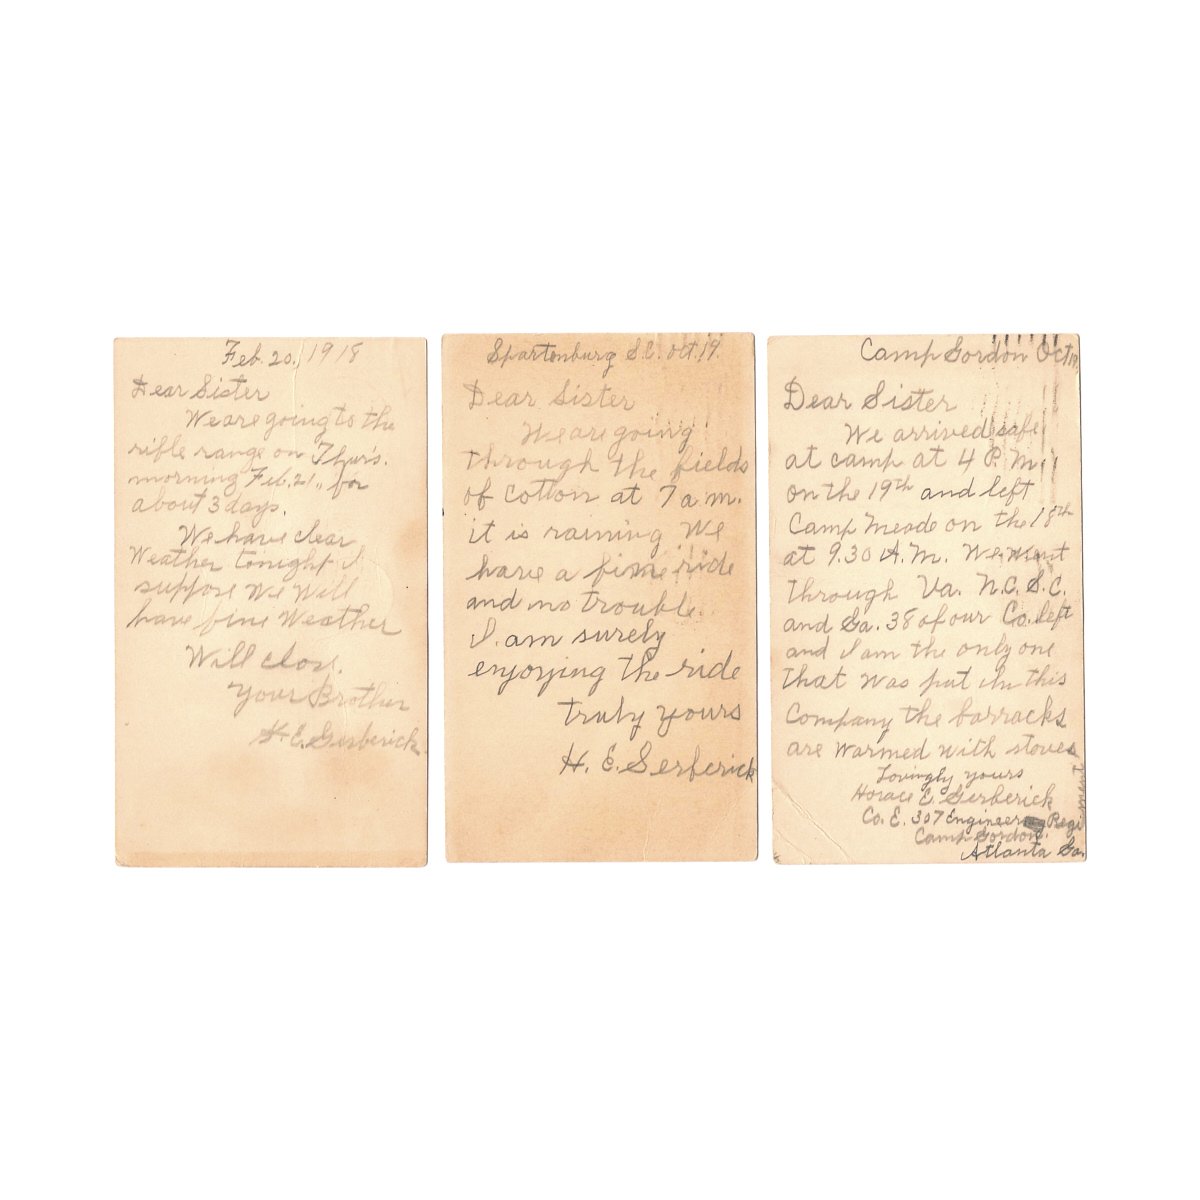 Feb. 20, 1918
Dear Sister
We are going to the
rifle range on Thur's.
morning Feb. 21., for
about 3 days.
We have clear
Weather tonight I
suppose We Will
have fine Weather
Will close.
Your Brother
H. E. Gerberick.
Spartenburg S.C. Oct. 19.
Dear Sister
We are going
through the fields
of cotton at 7 a.m.
it is raining We
have a fine ride
and no trouble.
I am surely
enjoying the ride
truly yours
H. E. Gerberick
Camp Gordon Oct
Dear Sister
We arrived safe
at camp at 4 P.M.
on the 19th and left
Camp Meade on the 18th
at 9.30 A.M. We went
through Va. N.C. S.C.
and Ga. 38 of our Co. left
and I am the only one
that was put in this
Company the barracks
are warmed with stoves
Lovingly yours
Horace E. Gerberick
Co. E. 307 Engineering Regiment
Camp Gordon.
Atlanta Ga.